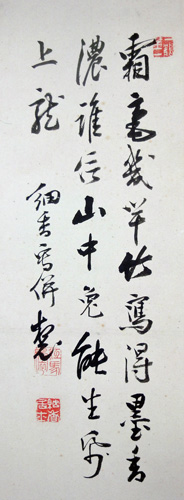 霜毫幾竿竹寫得墨香
濃誰信山中兔能生紙
上龍
細香寫併題